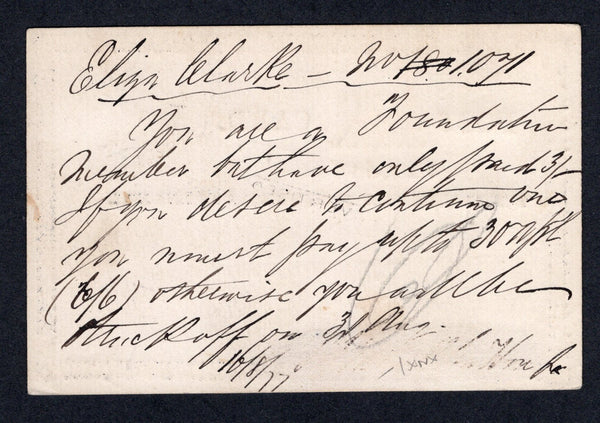 Eliza Clarke – No 180 1071
You are a Foundation
Member but have only paid 3/-
If you desire to continue one
you must pay up to 30 Sept
(6/6) otherwise you will be
struck off on 31 Aug.
16/8/77